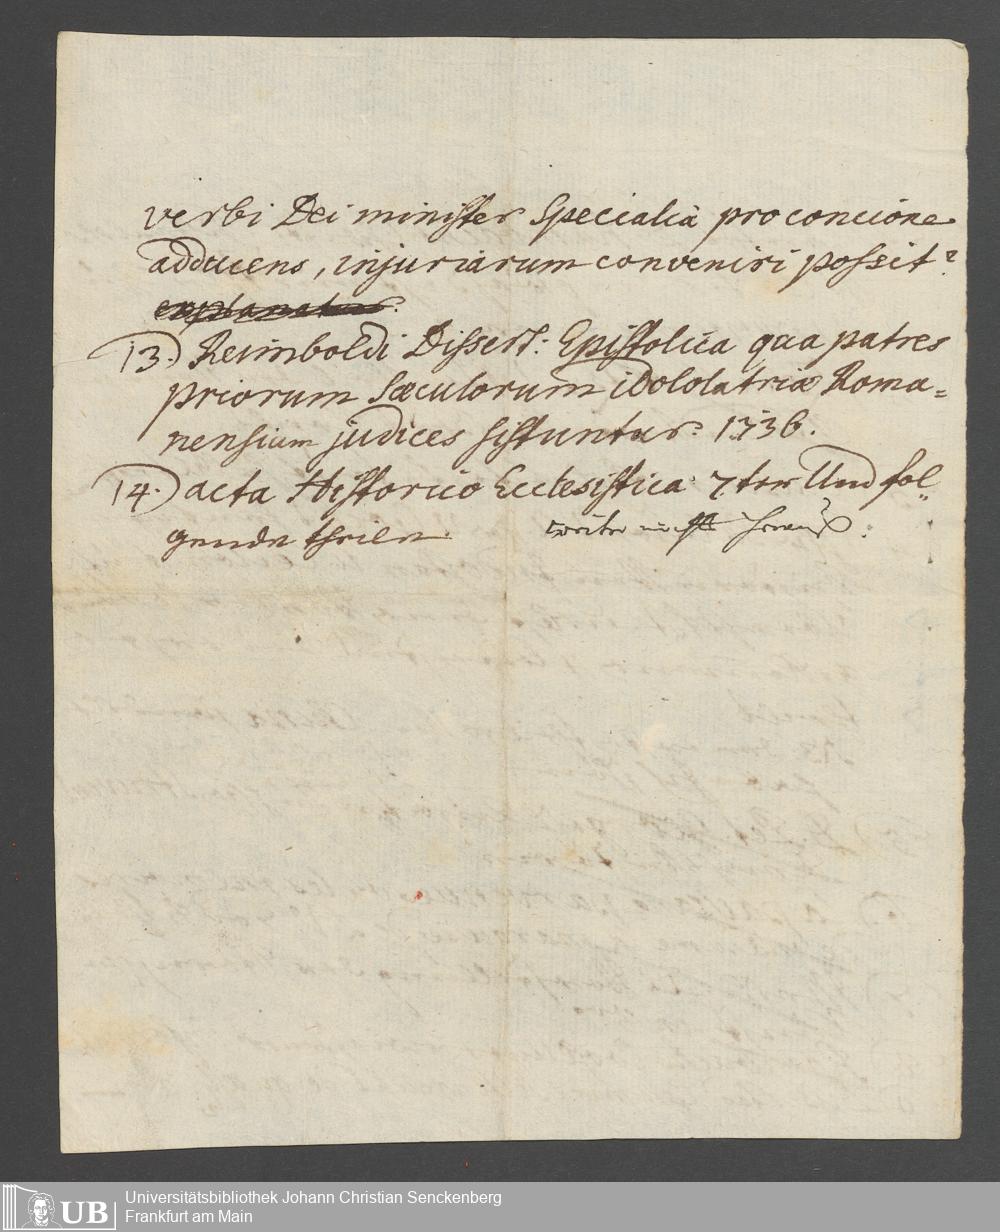 verbi Dei minister Specialia pro concione
adducens, injuriarum conveniri possit?
explanatur.
13.) Reimboldi Dissert: Epistolica qua patres
priorum Sæculorum idololatriæ Roma=
nensium judices sistuntur. 1736.
14.) acta Historico Ecclesistica 7ter Und fol=
gende theile.
weiter nichts heraus.
Universitätsbibliothek Johann Christian Senckenberg
UB Frankfurt am Main